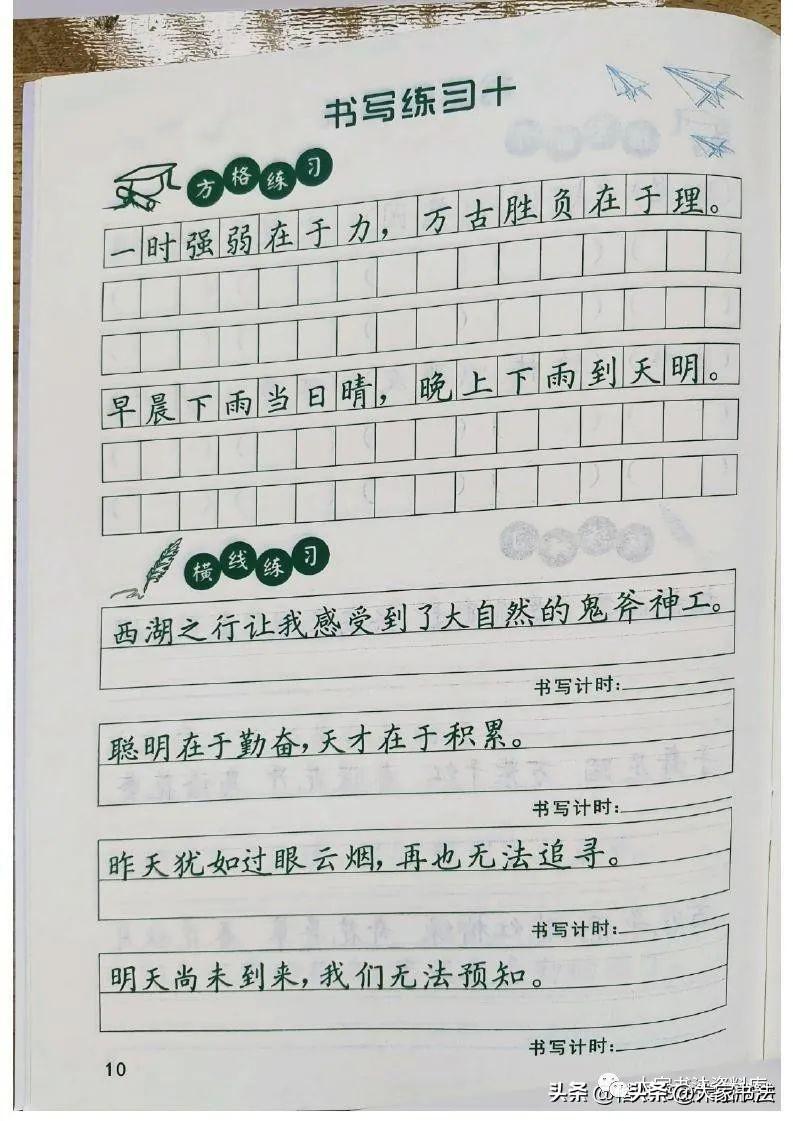 书写练习十
方格练习
一时强弱在于力，万古胜负在于理。
早晨下雨当日晴，晚上下雨到天明。
横线练习
西湖之行让我感受到了大自然的鬼斧神工。
书写计时：
聪明在于勤奋，天才在于积累。
书写计时：
昨天犹如过眼云烟，再也无法追寻。
书写计时：
明天尚未到来，我们无法预知。
书写计时：
10
头条@大家书法